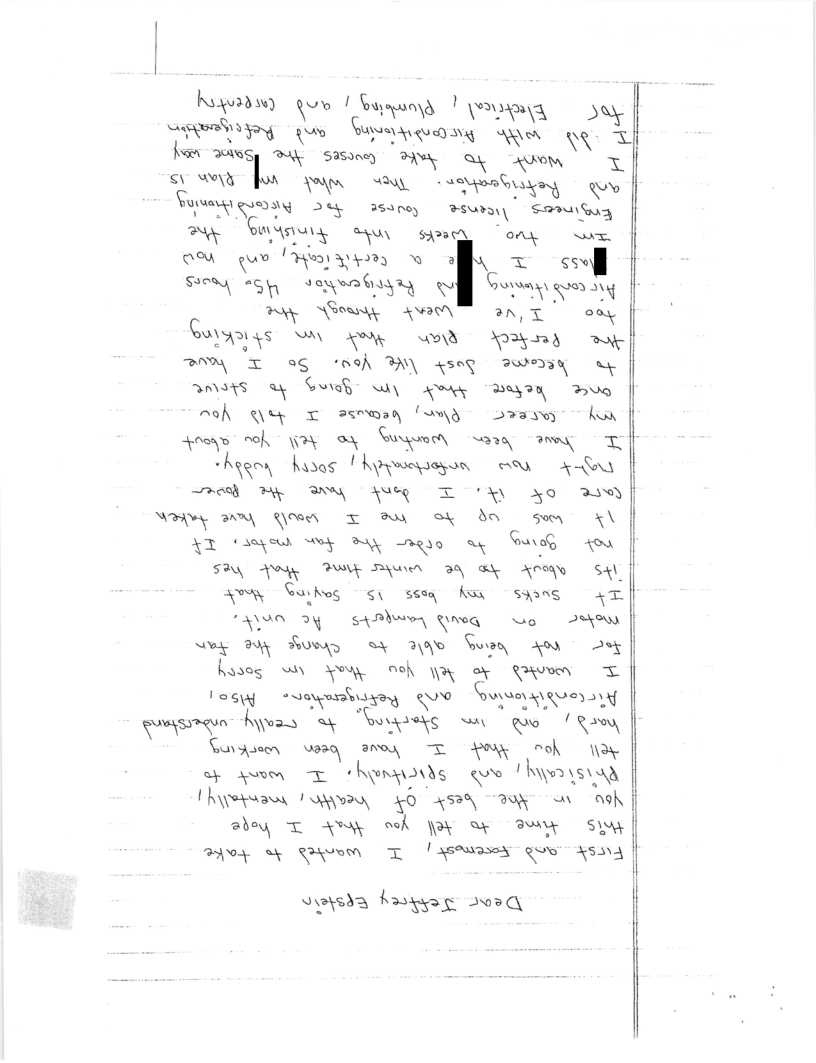 Dear Jeffrey Epstein
First and foremost, I wanted to take
this time to tell you that I hope
you in the best of health, mentally,
Phisically, and spiritualy. I want to
tell you that I have been working
hard, and im starting, to really understand
Airconditioning and Refrigeration. Also,
I wanted to tell you that im sorry
for not being able to change the fan
motor on David Lamperts Ac unit.
It sucks my boss is saying that
its about to be winter time that hes
not going to order the fan motor. If
it was up to me I would have taken
care of it. I dont have the power
right now unfortunately, sorry buddy.
I have been wanting to tell you about
my career plan, because I told you
once before that im going to strive
to become just like you. So I have
the perfect plan that im sticking
too I've went through the
Airconditioning and Refrigeration 450 hours
lass I h e a certificate, and now
Im two weeks into finishing the
Engineers license course for Airconditioning
and Refrigeration. Then what m plan is
I want to take courses the same way
I did with Airconditioning and Refrigeration
for Electrical, Plumbing, and Carpentry